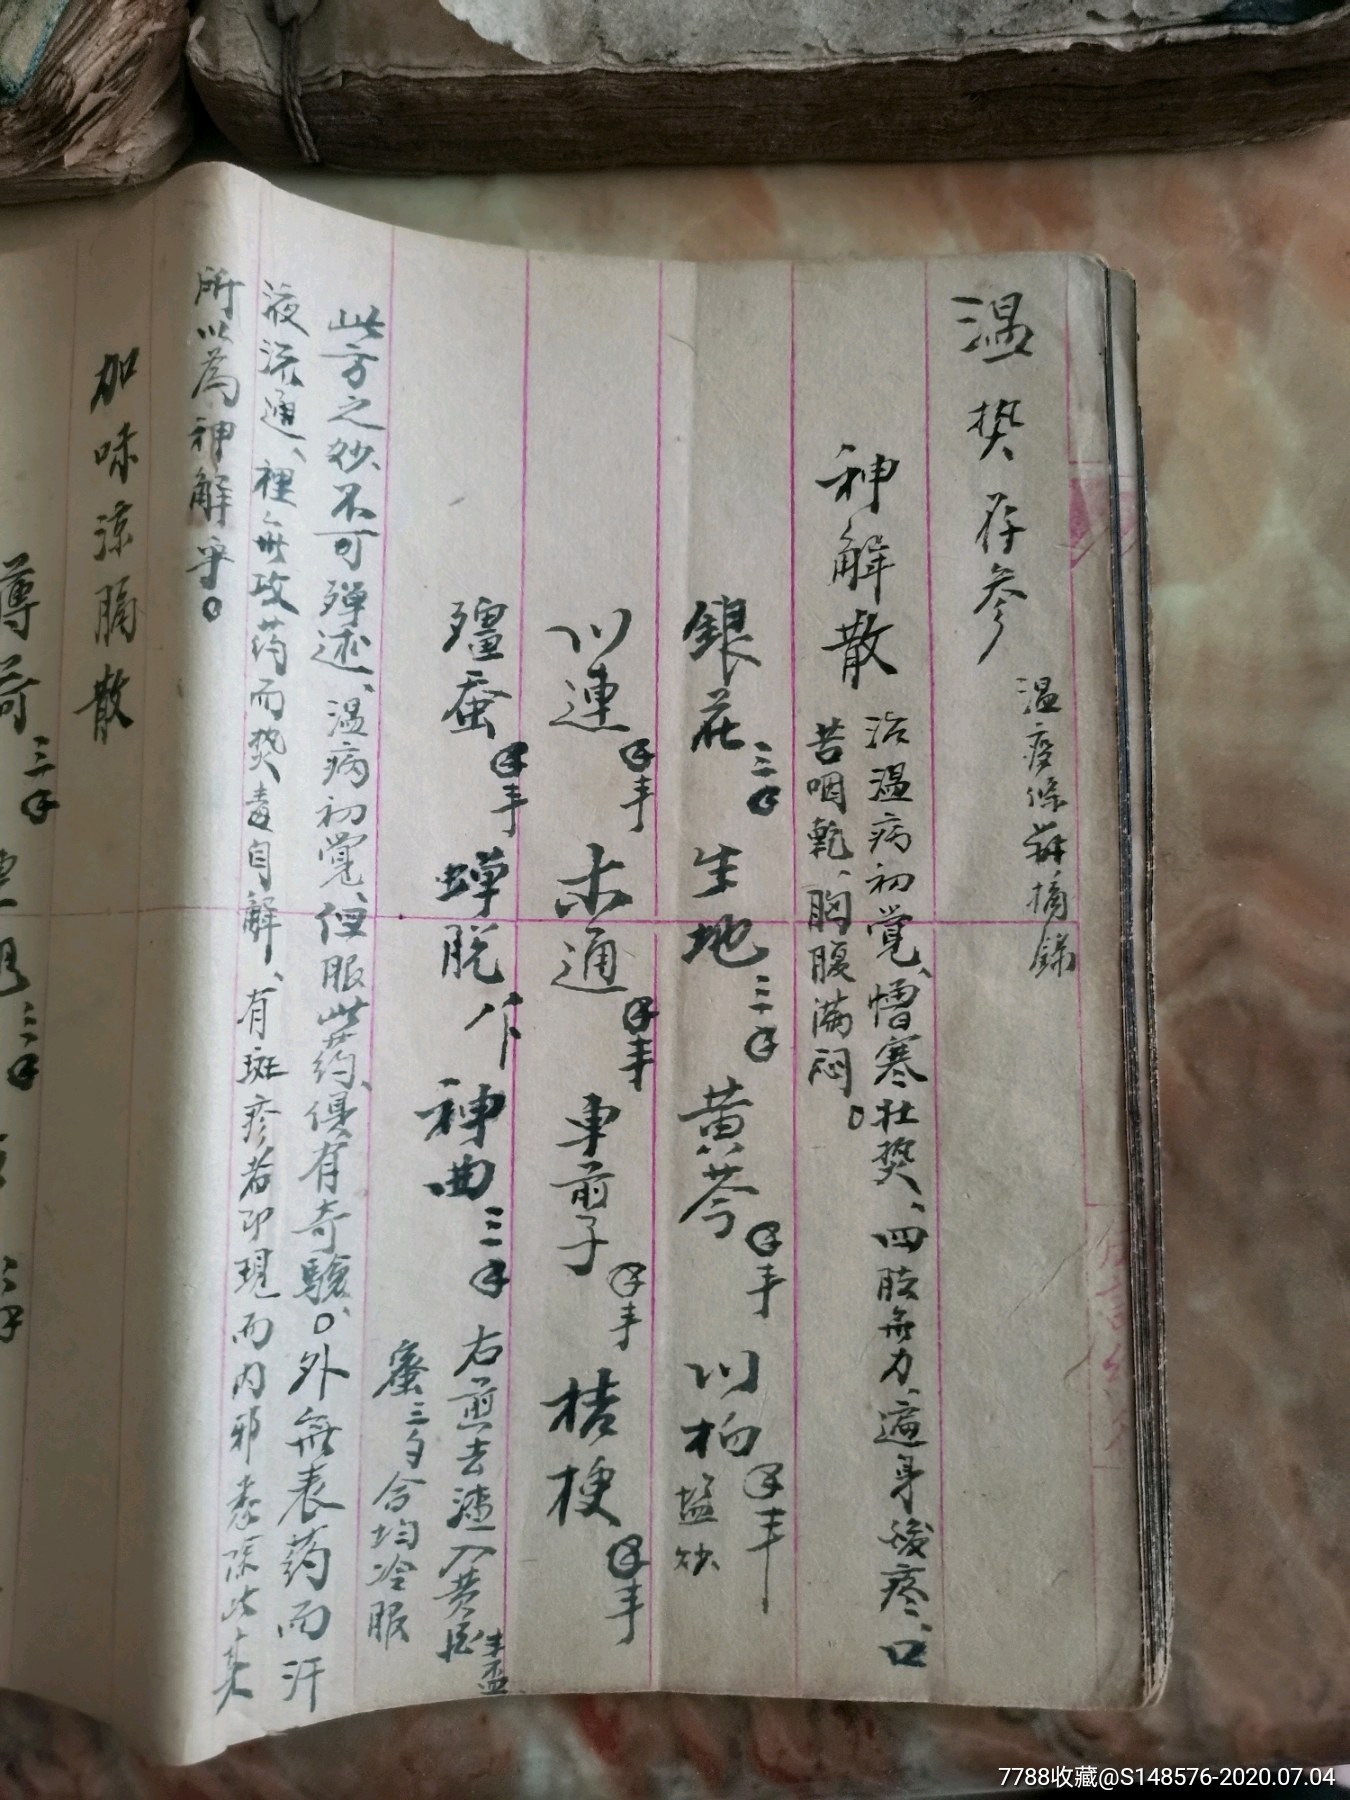 温热存参
温疫條辨摘錄
神解散
治温病初覺、憎寒壮热、四肢無力、遍身痠疼、口
苦咽乾、胸腹满闷。
銀花三钱 生地三钱 黄芩钱半 川柏钱半 塩炒
川連钱半 木通钱半 車前子钱半 桔梗钱半
殭蚕钱半 蝉脱 神曲三钱
右煎去渣入黄酒半盃
蜜三勺合均冷服
此方之妙、不可殫述、温病初覺、但服此药、俱有奇驗。外無表药而汗
液流通、裡無攻药而热毒自解、有斑疹者即現而内邪悉除此其
所以為神解乎。
加味涼膈散
薄荷三钱
7788收藏@S148576-2020.07.04